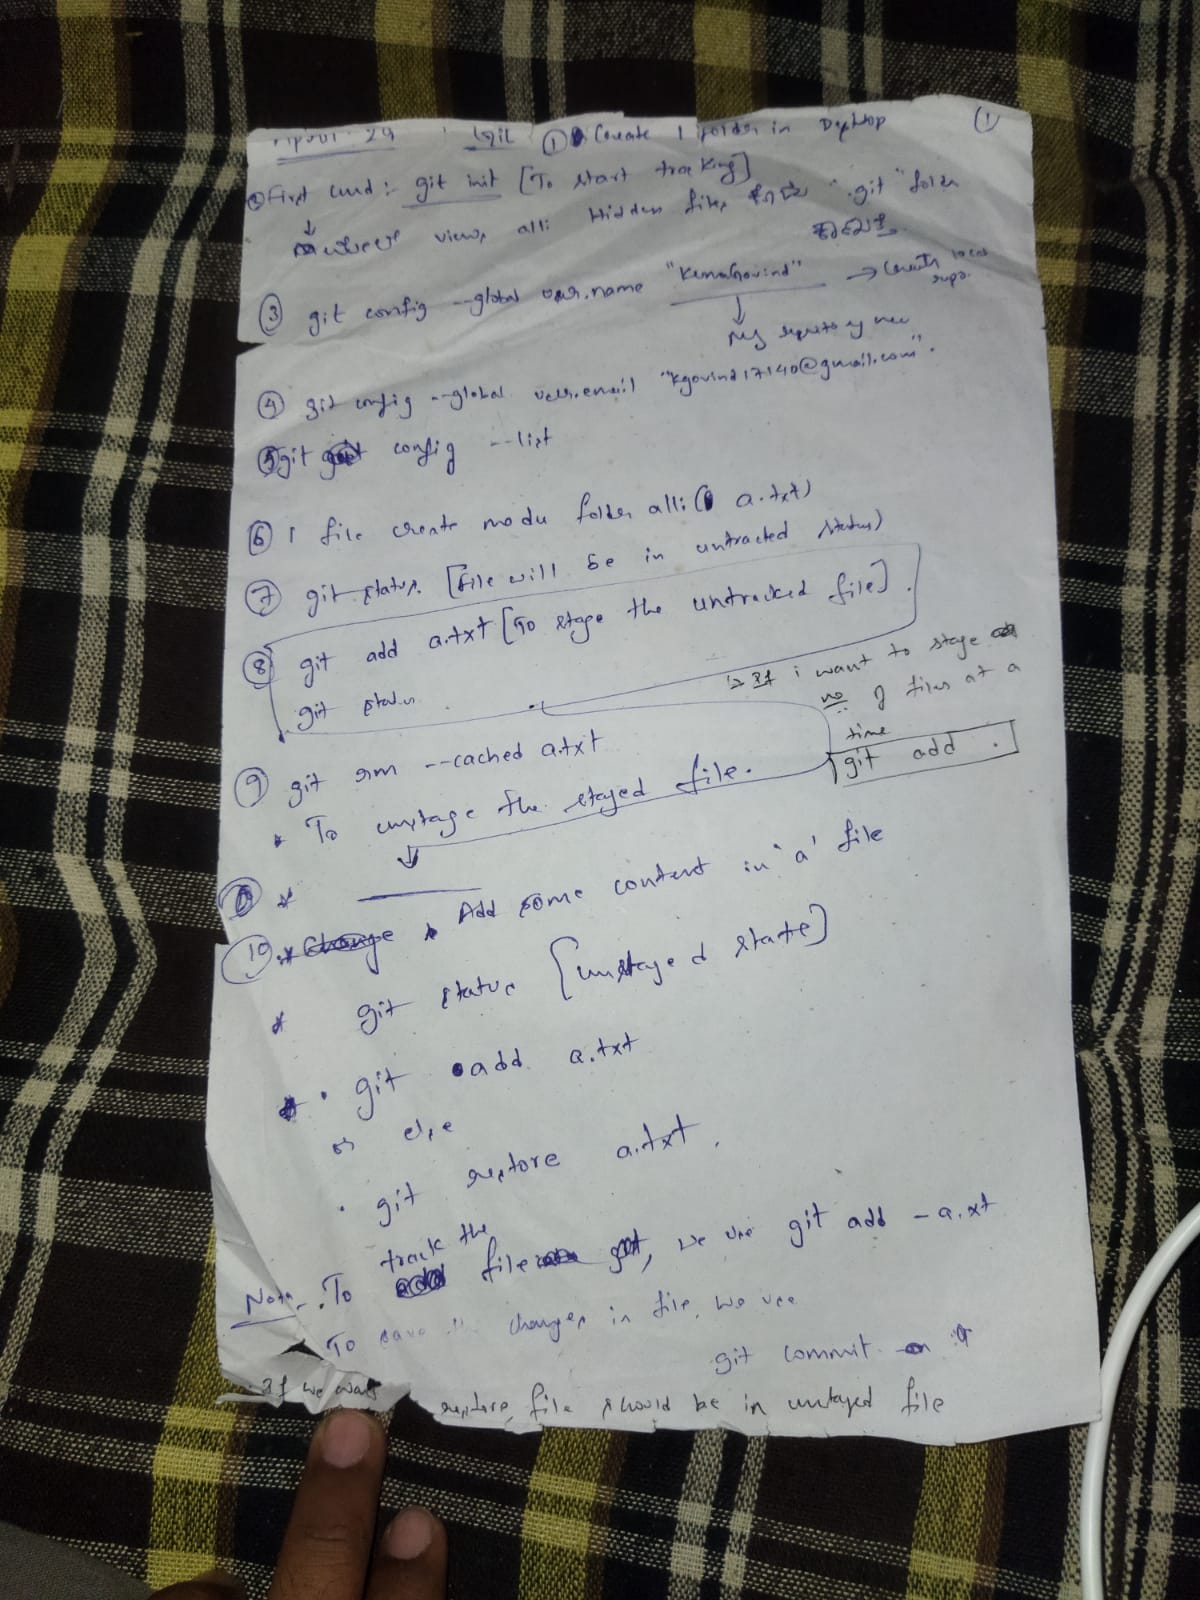 29 git ① Create 1 folder in Desktop ①
② First cmd :- git init [To start tracking]
view, alli Hidden files ".git" folder
③ git config --global user.name "KemaGovind" → Create local repo.
④ git config --global user.email "kgovind17140@gmail.com".
⑤ git config --list
⑥ 1 file create madu folder alli ( a.txt)
⑦ git status. [file will be in untracked status)
⑧ git add a.txt [To stage the untracked file].
git status
If i want to stage
no of files at a
time
git add .
⑨ git rm --cached a.txt
* To unstage the staged file.
⑩ * Change * Add some content in 'a' file
* git status [unstaged state]
* . git add a.txt
or else
. git restore a.txt.
track the
Note - . To add file, we use git add - a.xt
To save changes in file, we use
git commit
If we want restore, file should be in unstaged file